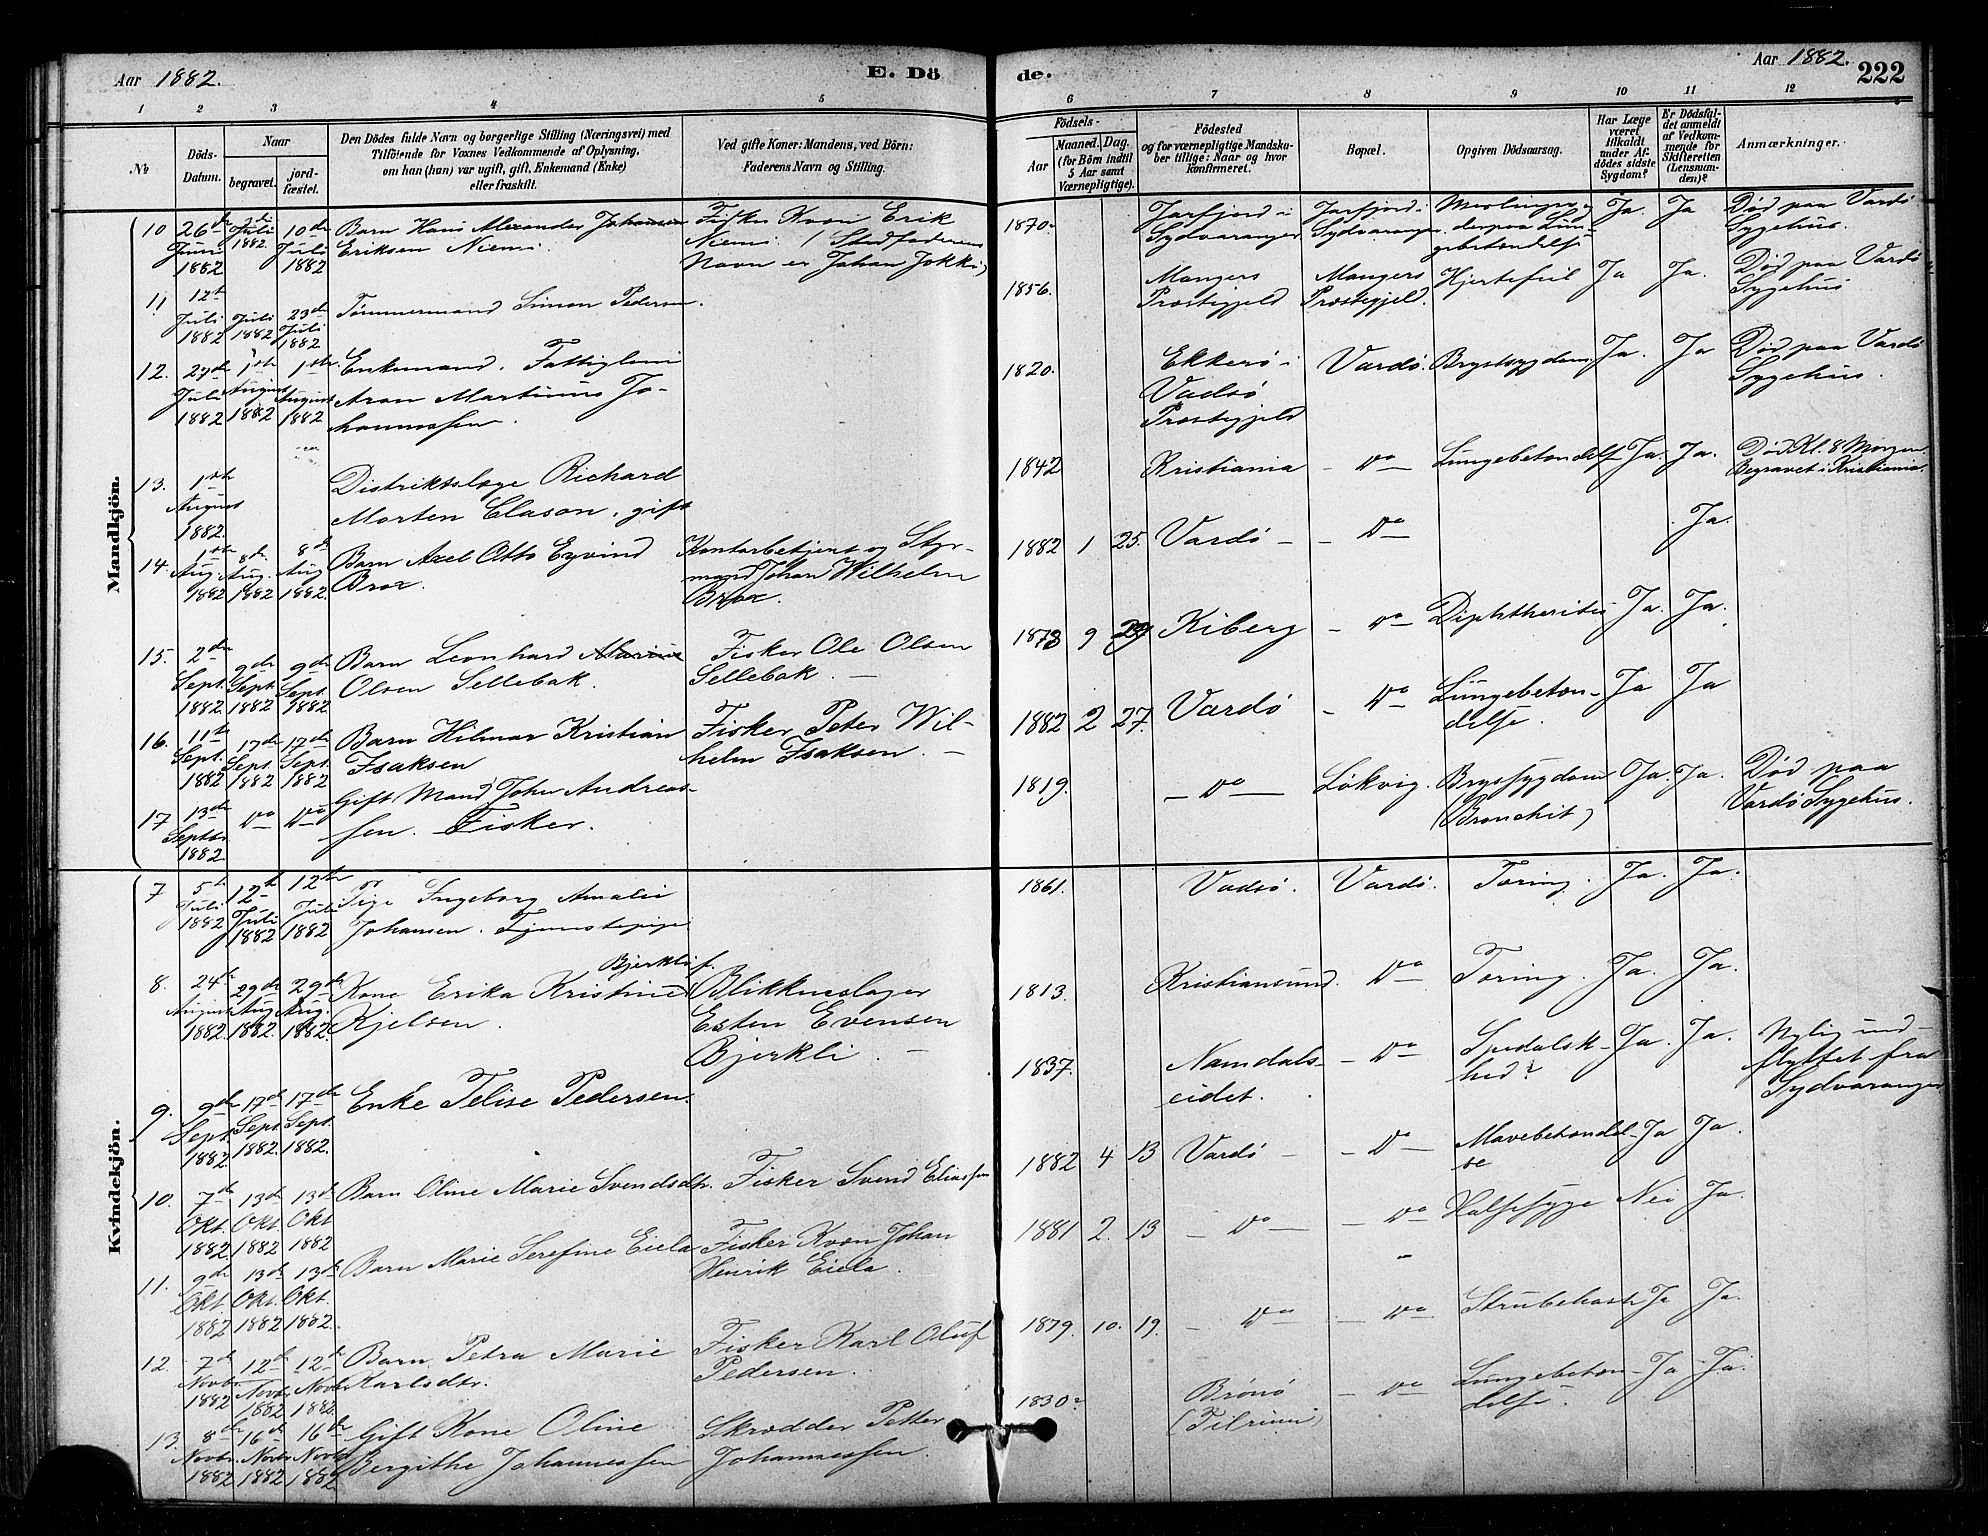 Aar 1882.
E. Dö
de.
Aar 1882.
222
1 2 3 4 5
6 7 8 9 10 11 12
No
Döds-
Datum.
Naar
begravet.
jord-
fæstet.
Den Dödes fulde Navn og borgerlige Stilling (Næringsvei) med
Tilföiende for Voxnes Vedkommende af Oplysning,
om han (hun) var ugift, gift, Enkemand (Enke)
eller fraskilt.
Ved gifte Koner: Mandens, ved Börn:
Faderens Navn og Stilling.
Födsels-
Aar
Maaned. Dag.
(for Börn indtil
5 Aar samt
Værnepligtige).
Födested
og for værnepligtige Mandska-
ber tillige: Naar og hvor
konfirmeret.
Bopæl.
Opgiven Dödsaarsag.
Har Læge
været
tilkaldt
under Af-
dödes sidste
Sygdom?
Er Dödsfal-
det anmeldt
af Vedkom-
mende for
Skifteretten
(Lensman-
den)?
Anmærkninger.
Mandkjön.
10 26de Juni 1882 2den Juli 1882 10de Juli 1882
Barn Hans Alexander Johansen
Eriksen Niemi
Fisker Kvæn Erik
Niemi. (Stedfaderens
Navn er Johan Jokki)
1870
Jarfjord i
Sydvaranger
Jarfjord i
Sydvaranger
Meslinger
derpaa Lun-
gebetændelse
Ja. Ja
Död paa Vardö
Sygehus.
11 12te Juli 1882 Juli 1882 23de Juli 1882
Tömmermand Simon Pedersen.
1856.
Mangers
Præstegjeld
Mangers
Præstegjeld.
Hjertefeil
Ja Ja.
Död paa Vardö
Sygehus
12. 27de Juli 1882 1ste August 1882 1ste August 1882
Enkemand. Fattiglem
Aron Martinus Jo-
hannessen.
1820.
Ekkerö i
Vadsö
Præstegjeld
Vardö.
Brystsygdom
Ja. Ja
Död paa Vardö
Sygehus.
13. 1ste August 1882.
Distriktslæge Richard
Morten Clason, gift
1842
Kristiania
Do
Lungebetændelse
Ja. Ja.
Död Kl. 8 Morgen
Begravet i Kristiania.
14. 1ste Aug. 1882 8de Aug. 1882 8de Aug 1882.
Barn Axel Otto Eyvind
Brox.
Kontorbetjent og Styr-
mand Johan Wilhelm
Brox.
1882 1 25.
Vardö
Do
Ja.
15. 2den Sept. 1882 9de Sept. 1882 9de Sept. 1882
Barn Leonhard
Olsen Sellebak.
Fisker Ole Olsen
Sellebak.
1878 9 29
Kiberg
Do
Diphtheritis
Ja. Ja.
16. 11te Sept. 1882 17de Sept. 1882 17de Sept. 1882
Barn Hilmar Kristian
Isaksen
Fisker Peter Wil-
helm Isaksen.
1882 2 27.
Vardö
Do
Lungebetæn-
delse.
Ja Ja
17 13de Septbr 1882 Do Do
Gift Mand John Andreas-
sen. Fisker.
1819.
Do
Lökvig.
Brystsygdom
(Bronchit)
Ja. Ja.
Död paa
Vardö Sygehus.
Kvindekjön.
7 5te Juli 1882 12te Juli 1882 12te Juli 1882
Pige Ingeborg Amalie
Johansen. Tjenestepige
1861.
Vadsö.
Vardö.
Tæring.
Ja. Ja.
8. 24de August 1882. 29de Aug. 1882. 29de Aug. 1882.
Bjerkli f.
Kone Erika Kristine
Kjelsen.
Blikkenslager
Esten Evensen
Bjerkli.
1813.
Kristiansund.
Do
Tæring.
Ja. Ja.
9. 9de Sept. 1882 17de Sept. 1882. 17de Sept. 1882.
Enke Telise Pedersen.
1837.
Namdals-
eidet.
Do
Spedalsk-
hed?
Ja. Ja.
Nylig ind-
flyttet fra
Sydvaranger
10. 7de Okt. 1882 13de Okt. 1882 13de Okt 1882
Barn Oline Marie Svendsdtr.
Fisker Svend Eliassen
1882 4 13
Vardö
Do
Mavebetændel-
se
Ja Ja.
11. 9de Okt. 1882 13de Okt. 1882 13de Okt. 1882.
Barn Marie Serefine Eiela
Fisker Kvæn Johan
Henrik Eiela.
1881 2. 13
Do
Do
Halssyge
Nei Ja.
12. 7de Novbr. 1882 12te Novbr. 1882 12te Novbr. 1882.
Barn Petra Marie
Karlsdtr.
Fisker Karl Oluf
Pedersen.
1879. 10. 19.
Do
Do
Strubehoste
Ja Ja.
13. 8de Novbr. 1882 16de Novbr. 1882 16de Novbr 1882
Gift Kone Oline
Bergithe Johannessen
Skrædder Petter
Johannessen.
1830?
Brönö
Do
Lungebetæn-
delse.
Ja Ja.